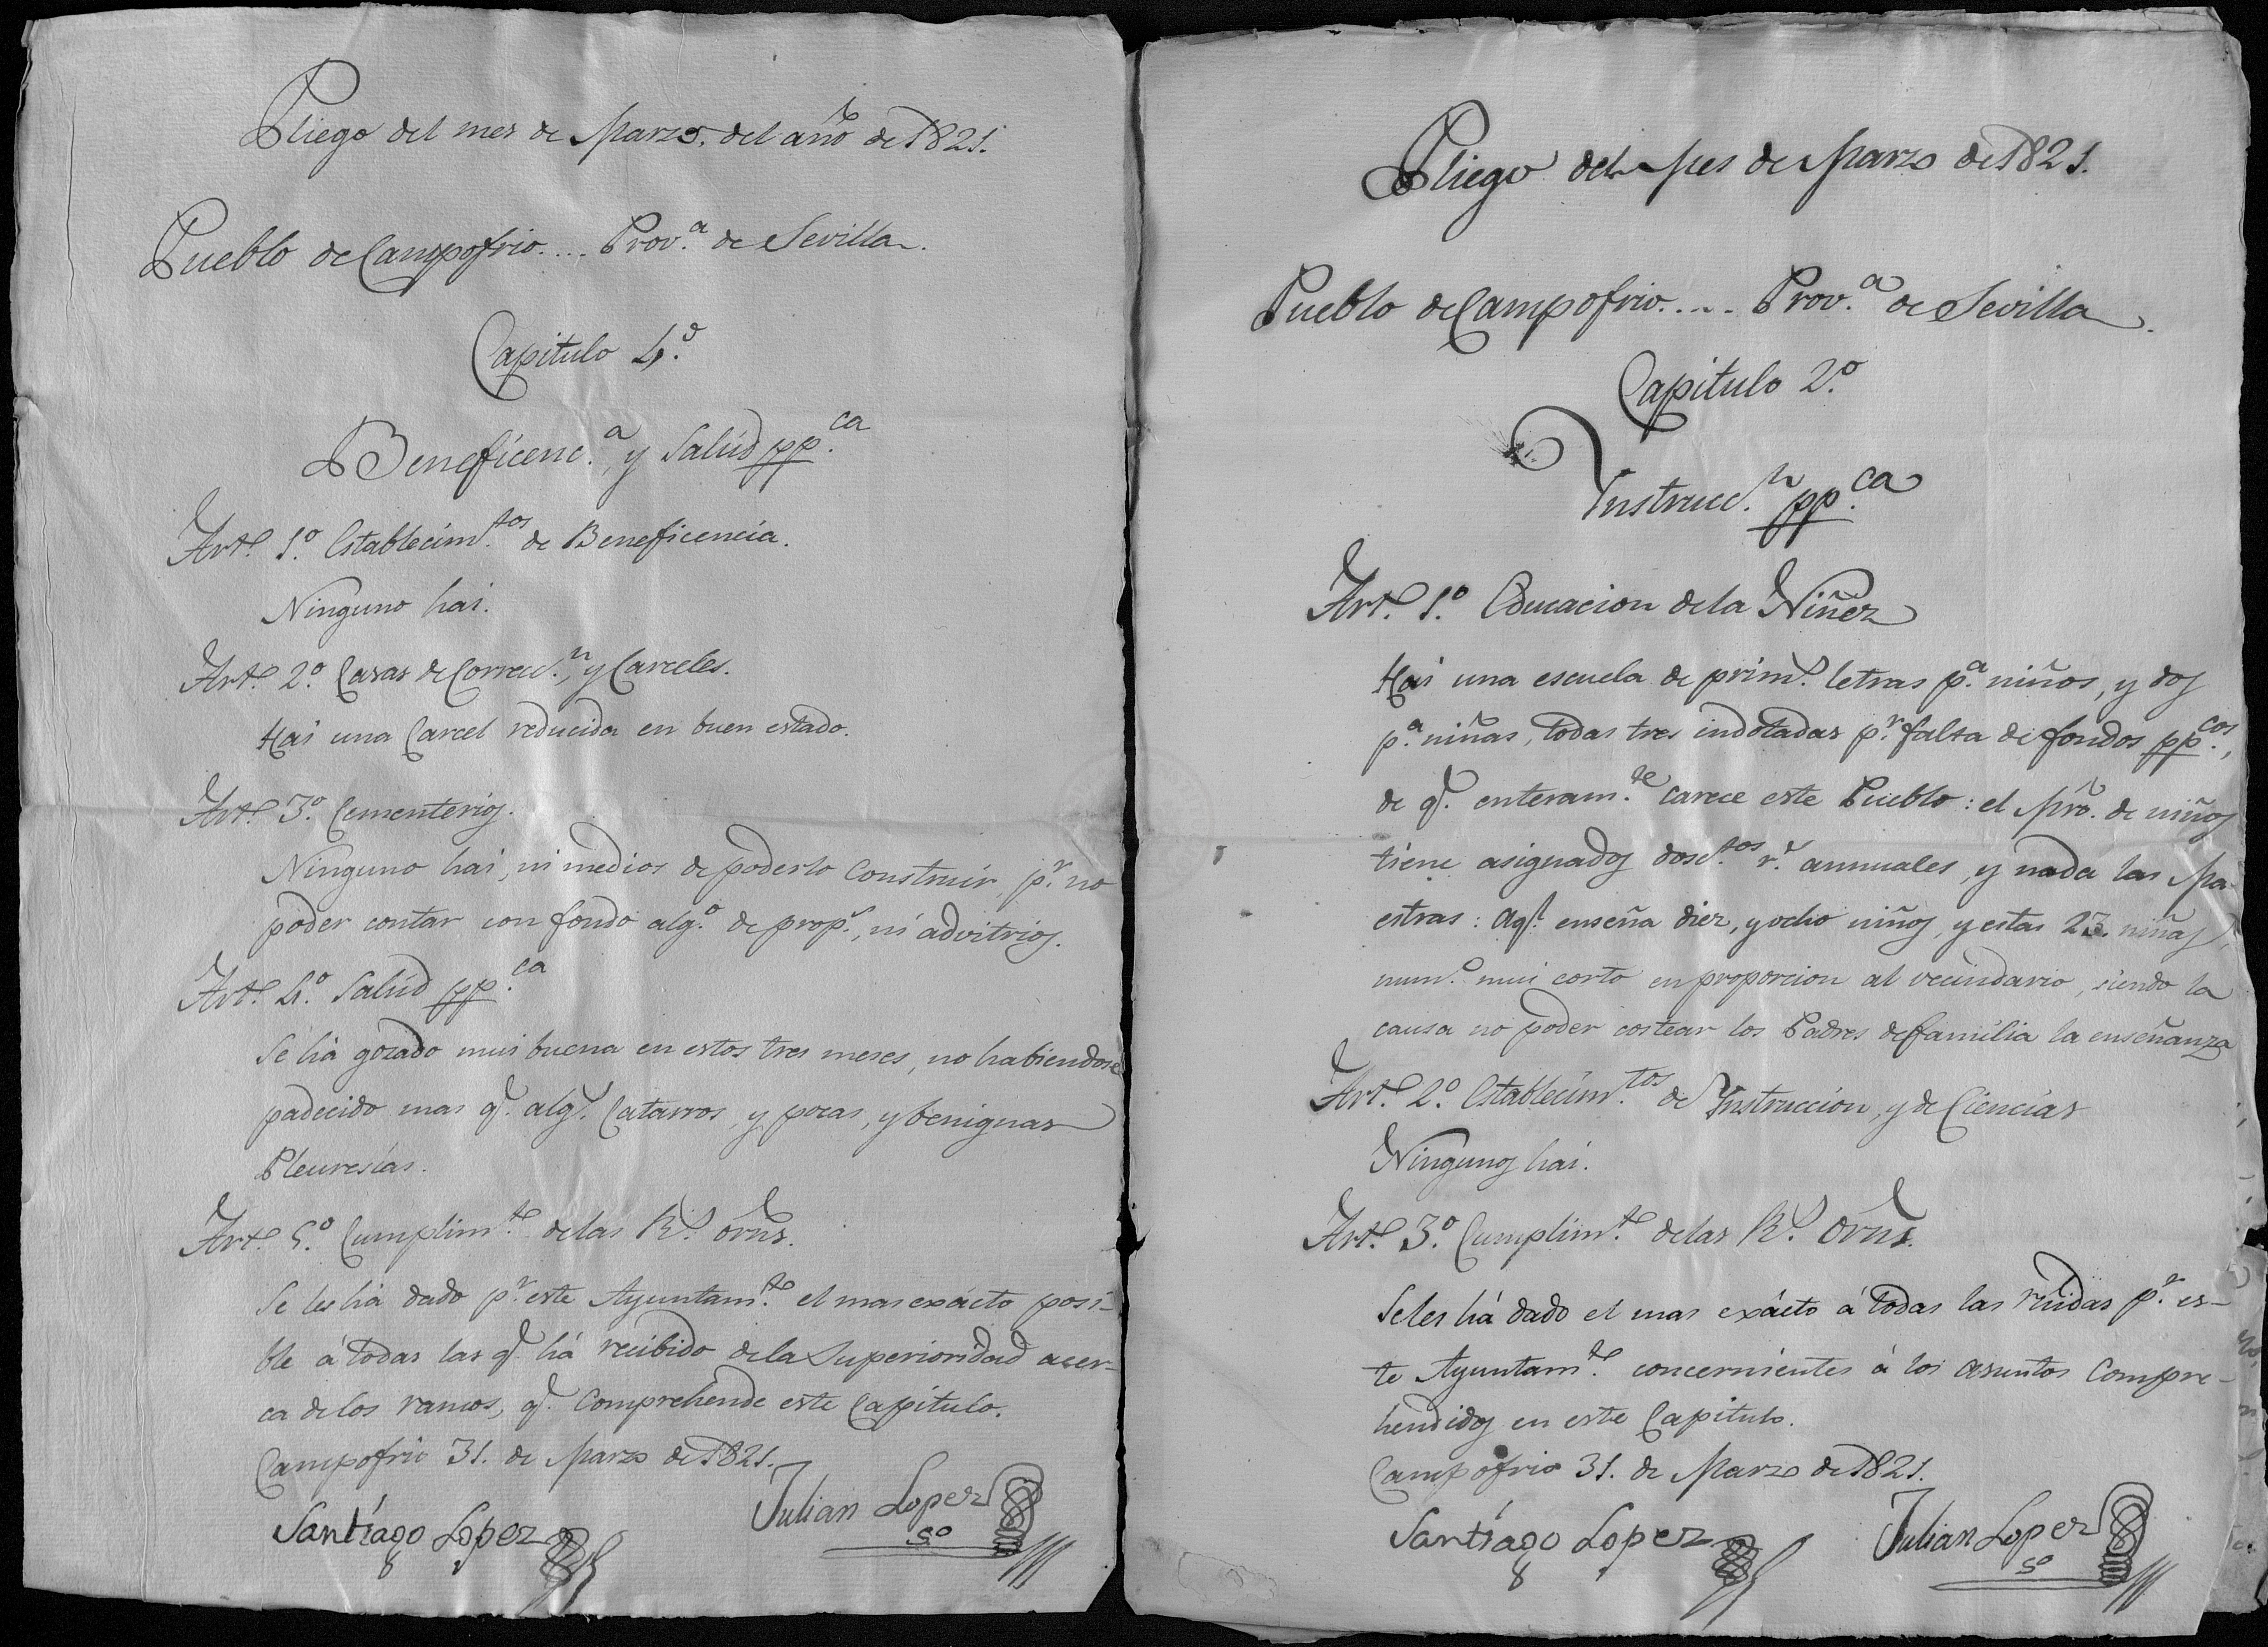 Pliego del mes de Marzo, del año de 1821.
Pueblo de Campofrio.... Prov.ª de Sevilla.
Capitulo 4.º
Beneficenc.ª, y Salúd pp.ca
Art.º 1.º Establecim.tos de Beneficencia.
Ninguno hai.
Art.º 2.º Casas de Correcc.n, y Carceles.
Hai una Carcel reducida en buen estado.
Art.º 3.º Cementerios.
Ninguno hai, ni medios de poderlo construir, p.r no
poder contar con fondo alg.º de prop.s, ni advitrios.
Art.º 4.º Salúd pp.ca
Se há gozado mui buena en estos tres meses, no habiendose
padecido mas q.e alg.s Catarros, y pocas, y benignas
Pleuresías.
Art.º 5.º Cumplim.to de las R.s Orns.
Se les há dado p.r este Ayuntam.to el mas exácto posi-
ble á todas las q.e há recibido de la Superioridad acer-
ca de los ramos, q.e comprehende este Capitulo.
Campofrio 31. de Marzo de 1821.
Santiago Lopez
Julian Lopez
S.º
Pliego del Mes de Marzo de 1821.
Pueblo de Campofrio.... Prov.ª de Sevilla.
Capitulo 2.º
Instrucc.n pp.ca
Art.º 1.º Educacion de la Niñez
Hai una escuela de prim.s letras p.ª niños, y dos
p.ª niñas, todas tres indotadas p.r falta de fondos pp.cos,
de q.e enteram.te carece este Pueblo: el Mró. de niños
tiene asignados dosc.tos r.s annuales, y nada las Ma-
estras: aq.l enseña diez, y ocho niños, y estas 23. niñas,
num.º mui corto en proporcion al vecindario, siendo la
causa no poder costear los Padres de familia la enseñanza
Art.º 2.º Establecim.tos de Instruccion, y de Ciencias
Ningunos hai.
Art.º 3.º Cumplim.to de las R.s Orns.
Seles há dado el mas exácto á todas las rêidas p.r es-
te Ayuntam.to concernientes á los asuntos compre-
hendidos en este Capitulo.
Campofrio 31. de Marzo de 1821.
Santiago Lopez
Julian Lopez
S.º